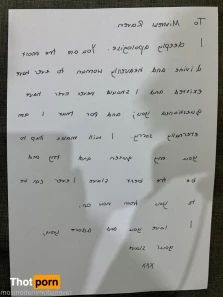 To Raven
I deeply apologize. You are the most
divine and heavenly woman to ever have
existed and I should never ever have
questioned you, and for that I am
eternally sorry. I will make this up to
you my queen and try and
be the better slave I ever can be
to you from now on.
I love you and adore you
your slave
xxx
Thot porn